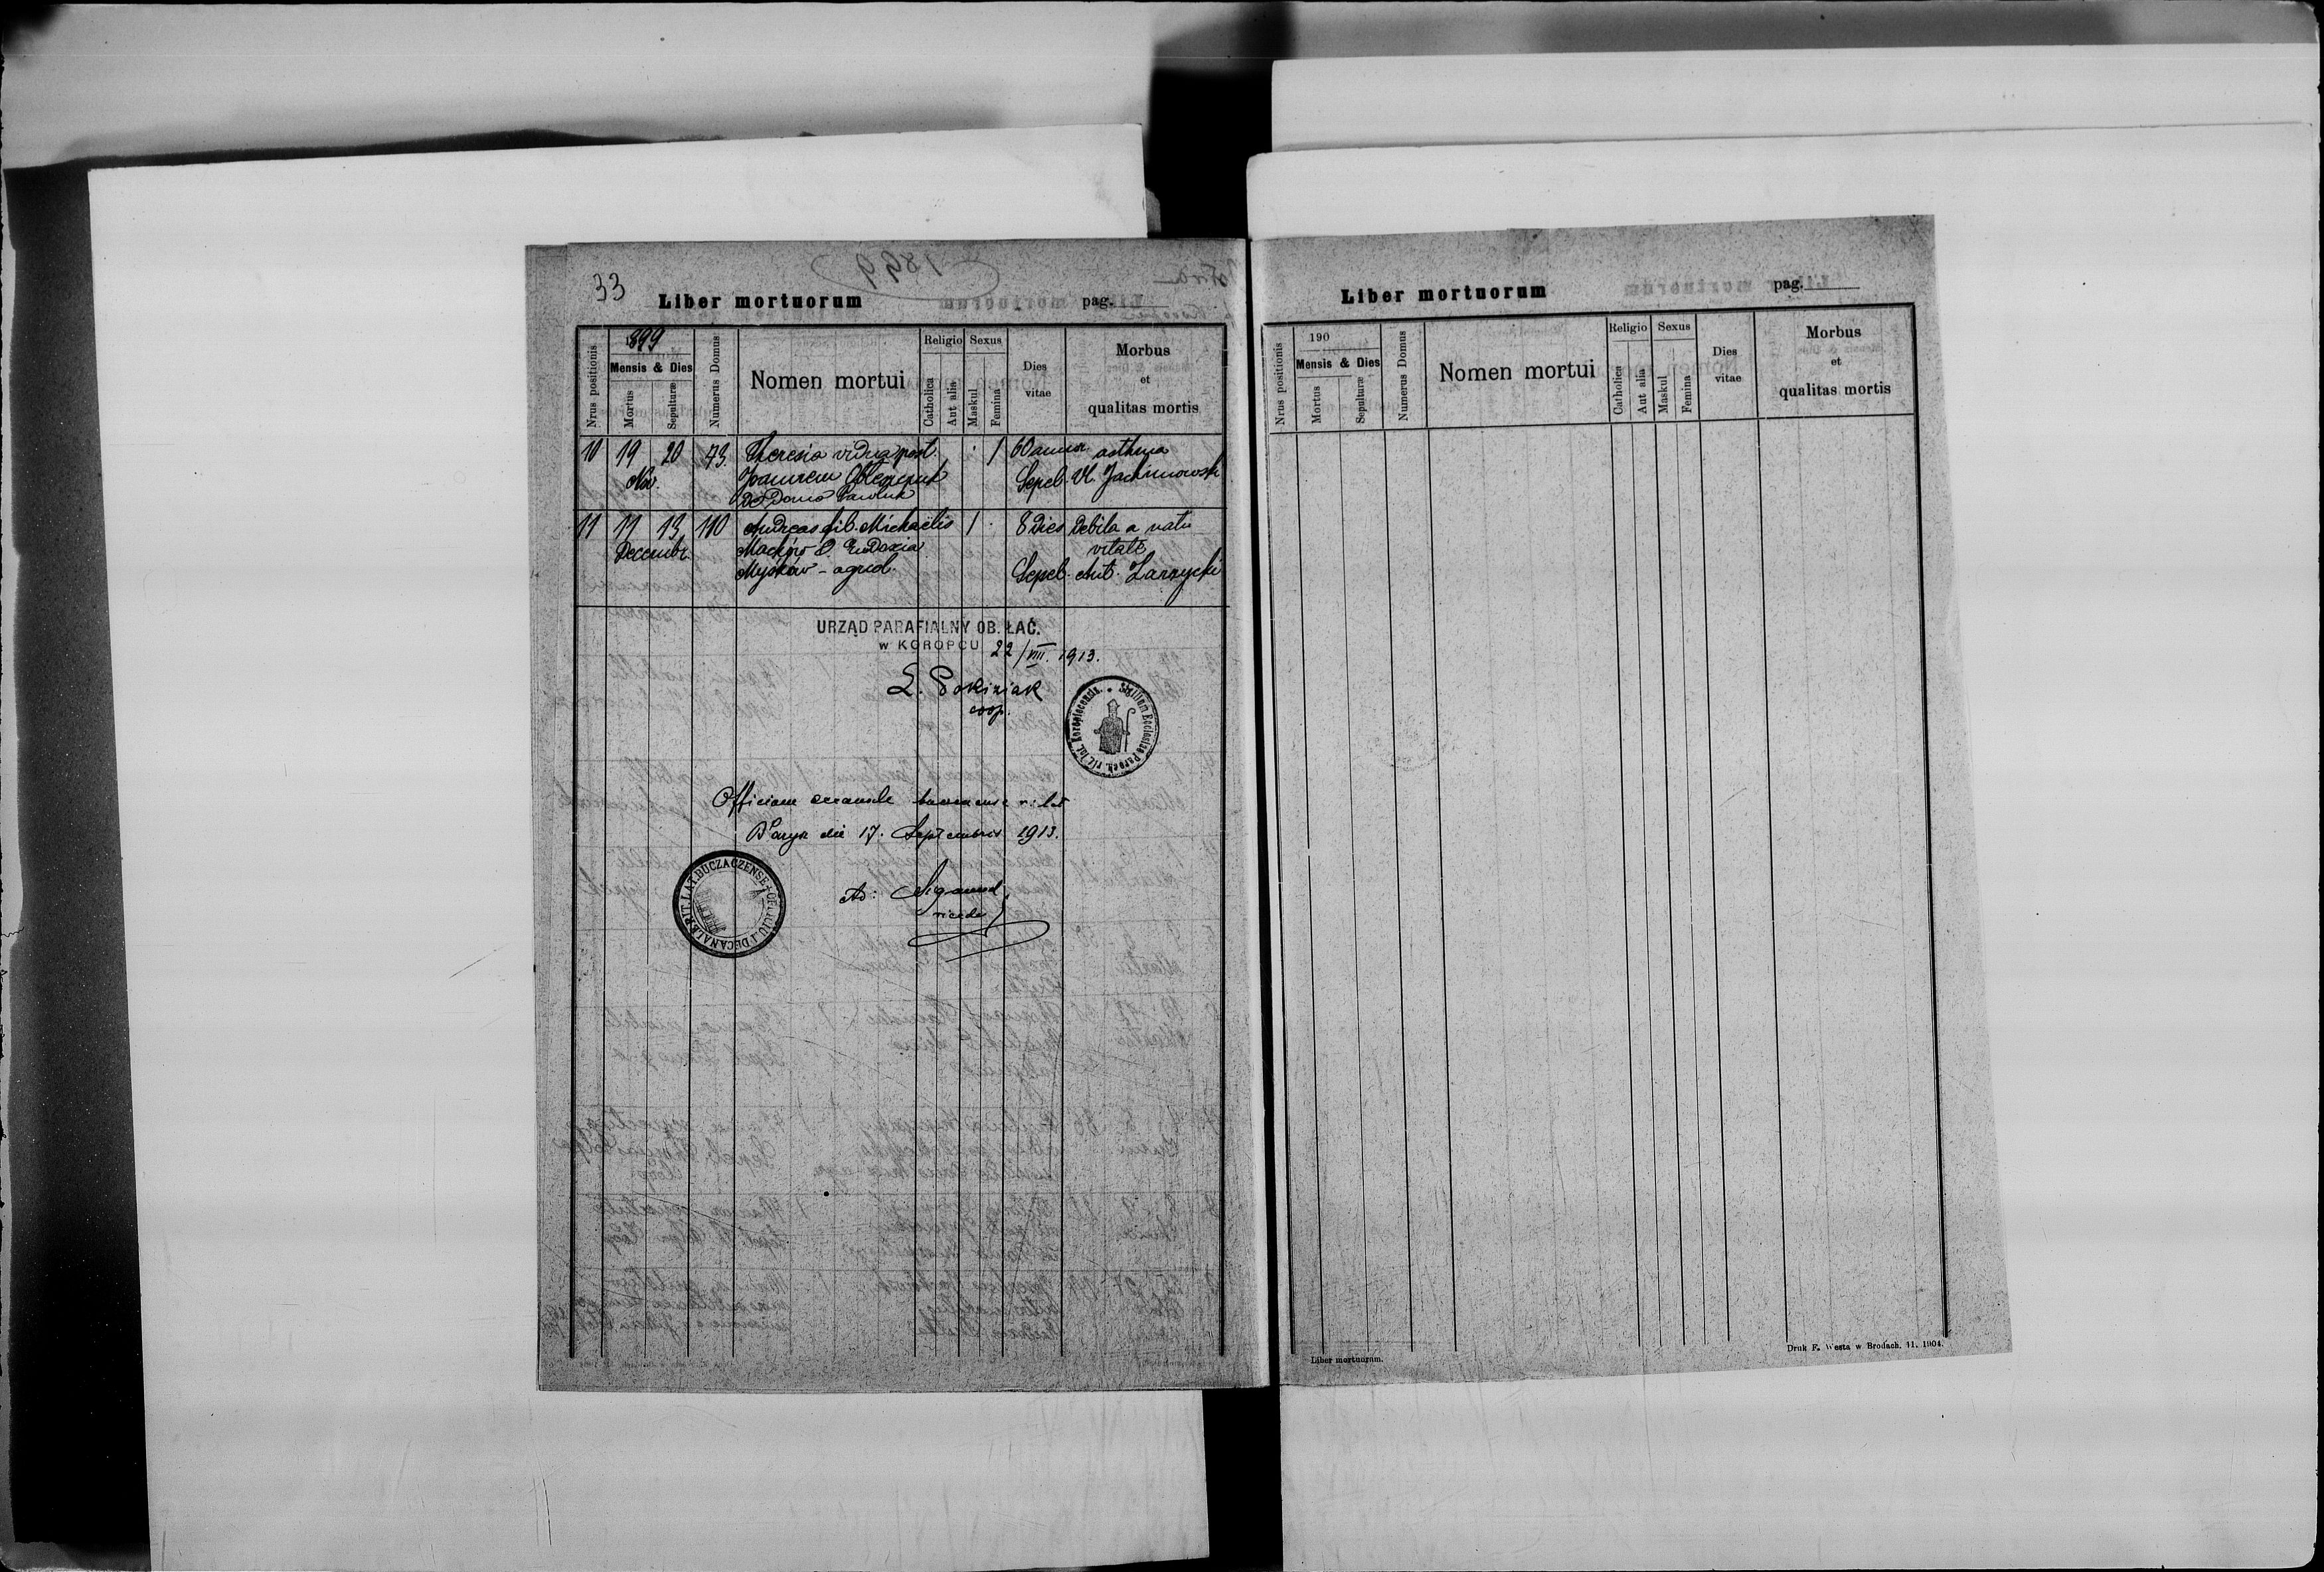 33
Liber mortuorum
pag.
Nrus positionis
899
Mensis & Dies
Mortus
Sepulturæ
Numerus Domus
Nomen mortui
Religio
Catholica
Aut alia
Sexus
Maskul
Femina
Dies vitae
Morbus
et
qualitas mortis
10 19 20 73. Theresia vidua post. 1 60 annor asthma
Nov. Joannem Sepel. Vl. Jachimowski
de domo Pawluk
11 11 13 110 Andreas fil. Michaëlis 1 8 dies debila a natu
Decembr. Mackiw & Eudoxia vitate
Myskiw - agricol. Sepel. Ant. Zarzycki
URZĄD PARAFIALNY OB. ŁAĆ.
w KOROPCU 22/VIII. 1913.
coop.
Sigillum Ecclesiae Paroch. rit. lat. Koropiecensis.
Officium decanale buczacense r. lat
Baryz die 17. Septembris 1913.
OFFICIUM DECANALE RIT. LAT. BUCZACZENSE
Liber mortuorum
pag.
Nrus positionis
190
Mensis & Dies
Mortus
Sepulturæ
Numerus Domus
Nomen mortui
Religio
Catholica
Aut alia
Sexus
Maskul
Femina
Dies
vitae
Morbus
et
qualitas mortis
Liber mortuorum.
Druk F. Westa w Brodach. 11. 1904.